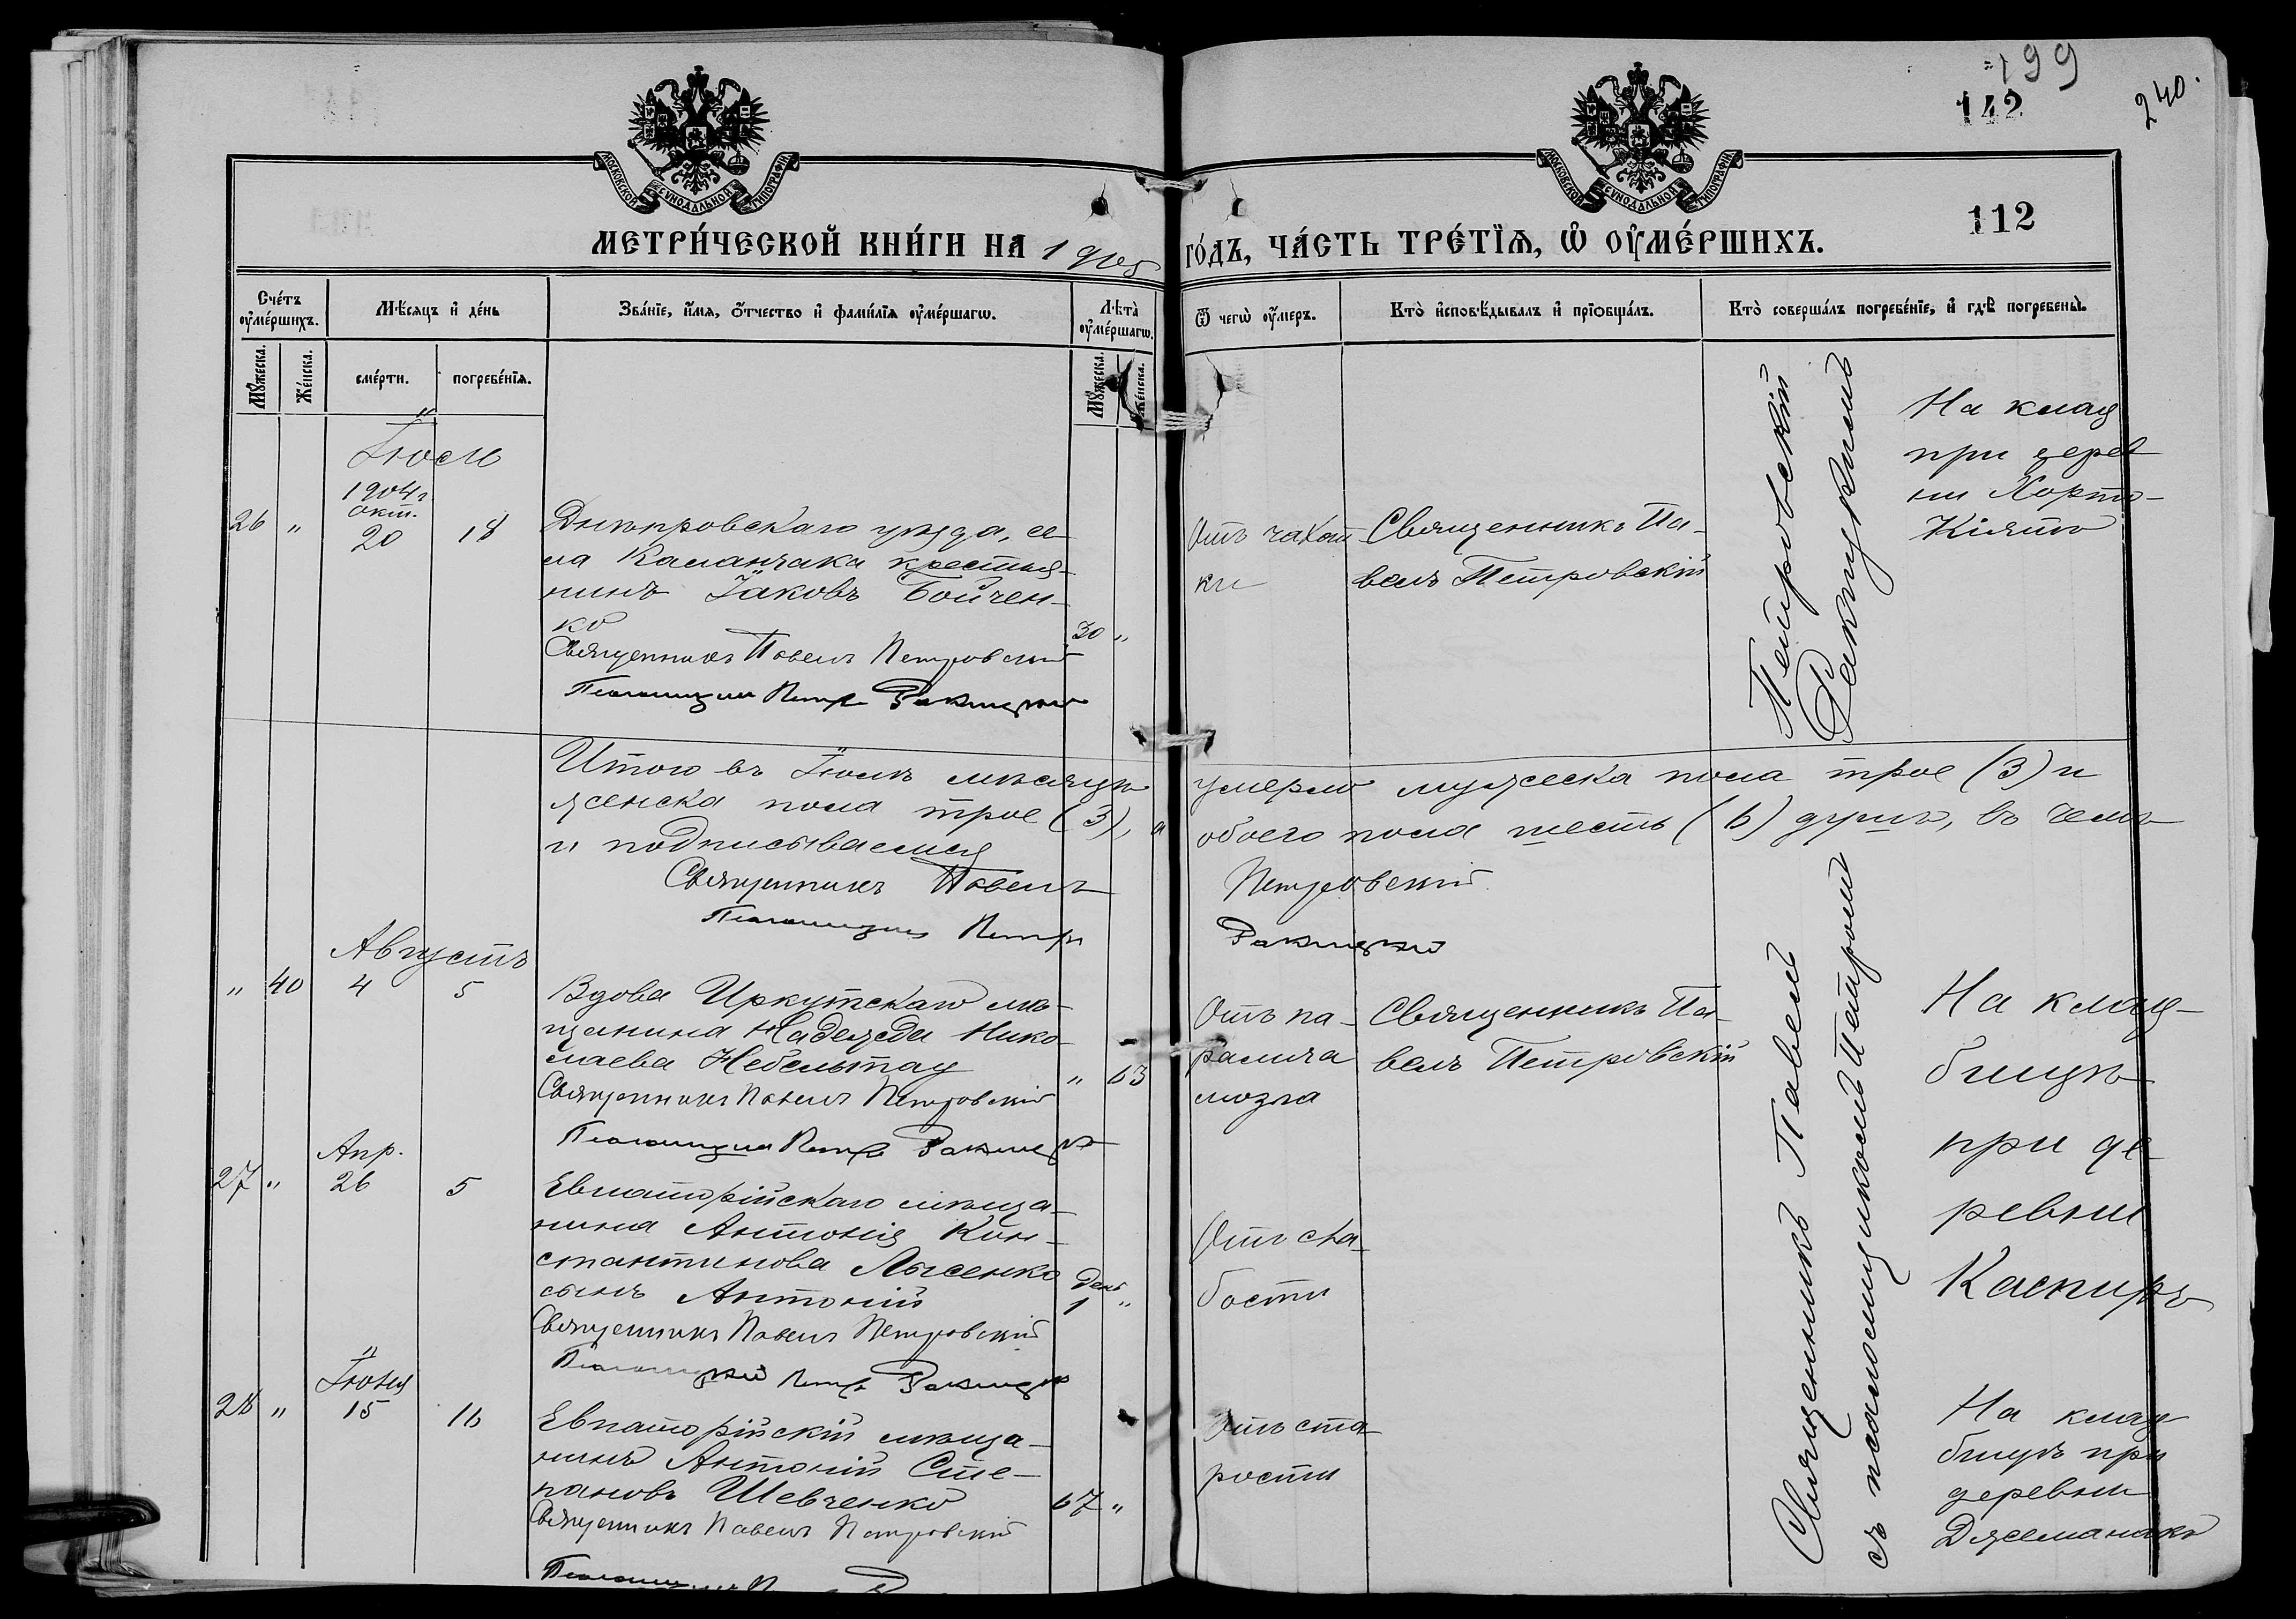 199
142
240.
МОСКОВСКОЙ СУНОДАЛЬНОЙ ТИПОГРАФІИ
МОСКОВСКОЙ СУНОДАЛЬНОЙ ТИПОГРАФІИ
112
МЕТРИ́ЧЕСКОЙ КНИ́ГИ НА 1905
ГО́ДЪ, ЧА́СТЬ ТРЕ́ТЇѦ, Ѡ҆ ОУ҆МЕ́РШИХЪ.
Сче́тъ оу҆ме́ршихъ.
Мѣ́сяцъ и҆ де́нь
Зва́нїе, и҆́мѧ, ѻ҆́тчество и҆ фами́лїѧ оу҆ме́ршагѡ.
Лѣ́та̀ оу҆ме́ршагѡ.
Ѿ чегѡ̀ оу҆́меръ.
Кто̀ и҆сповѣ́дывалъ и҆ прїѡбща́лъ.
Кто̀ соверша́лъ погребе́нїе, и҆ гдѣ̀ погребены̀.
Мꙋ́жеска.
Же́нска.
сме́рти.
погребе́нїѧ.
Мꙋ́жеска.
Же́нска.
Іюль
1904 г.
окт.
26 " 20 18
Днѣпровскаго уѣзда, се-
ла Каланчака крестья-
нинъ Іаковъ Бойчен-
ко
30 "
Священникъ Павелъ Петровскій
Псаломщикъ Петръ Ракицкій
Отъ чахот-
ки
Священникъ Па-
велъ Петровскій
Петровскій
Ракицкимъ
На клад
при дерев
ни Корто-
Кіято
Итого въ Іюлѣ мѣсяцѣ умерло мужеска пола трое (3) и
женска пола трое (3), а обоего пола шесть (6) душъ, въ чемъ
и подписываемся
Священникъ Павелъ Петровскій
Псаломщикъ Петръ Ракицкій
Августъ
" 40 4 5
Вдова Иркутскаго мѣ-
щанина Надежда Нико-
лаева Небельтау
" 63
Священникъ Павелъ Петровскій
Псаломщикъ Петръ Ракицкій
Отъ па-
ралича
мозга
Священникъ Па-
велъ Петровскій
Священникъ Павелъ
съ псаломщикомъ Петромъ
На клад-
бищѣ
при де-
ревни
Каспиръ
Апр.
27 " 26 5
Евпаторійскаго мѣща-
нина Антонія Кон-
стантинова Лысенко
сынъ Антоній
день
1 "
Священникъ Павелъ Петровскій
Псаломщикъ Петръ Ракицкій
Отъ сла-
бости
Іюня
28 " 15 16
Евпаторійскій мѣща-
нинъ Антоній Сте-
пановъ Шевченко
67 "
Священникъ Павелъ Петровскій
Отъ ста-
рости
На клад-
бищѣ при
деревни
Джеманакъ